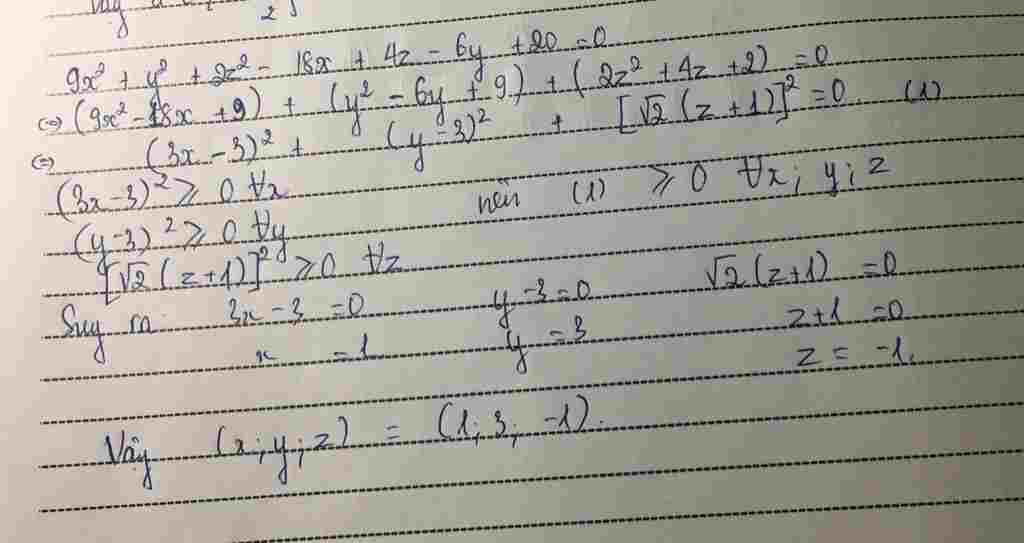 Vậy
2
9x² + y² + 2z² - 18x + 4z - 6y + 20 = 0
(=) (9x² - 18x + 9) + (y² - 6y + 9) + (2z² + 4z + 2) = 0
(=) (3x - 3)² + (y - 3)² + [√2 (z + 1)]² = 0 (1)
(3x - 3)² ⩾ 0 ∀x nên (1) ⩾ 0 ∀x; y; z
(y - 3)² ⩾ 0 ∀y
[√2 (z + 1)]² ⩾ 0 ∀z
Suy ra 3x - 3 = 0 y - 3 = 0 √2 (z + 1) = 0
x = 1 y = 3 z + 1 = 0
z = -1.
Vậy (x; y; z) = (1; 3; -1).